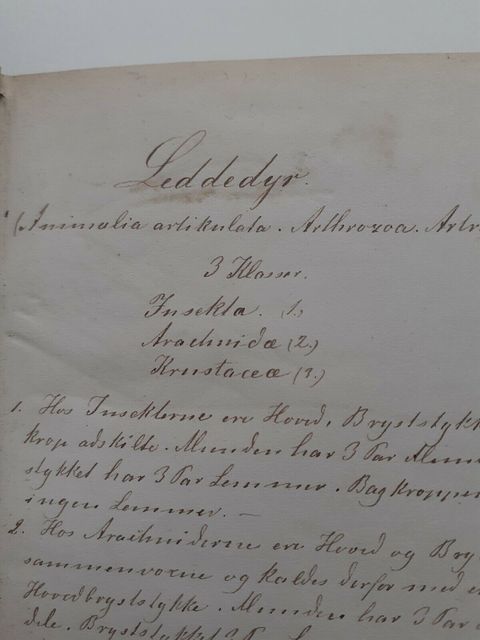 Leddedyr.
(Animalia artikulata. Arthrozoa. Artr
3 Klasser.
Insekta. (1.)
Arachnidæ (2.)
Krustaceæ (3.)
1. Hos Insekterne ere Hoved, Brystsykk
krop adskilte. Munden har 3 Par Mun
stykket har 3 Par Lemmer. Bagkroppen
ingen Lemmer. —
2. Hos Arachniderne ere Hoved og Bry
sammenvoxne og kaldes derfor med e
Hovedbryststykke. Munden har 3 Par
dele. Bryststykket